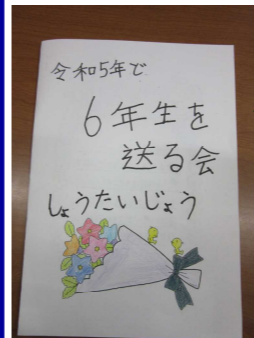 令和5年で
6年生を
送る会
しょうたいじょう